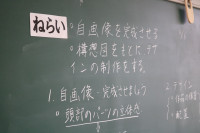 ねらい
○自画像を完成させる
○構想図をもとに、デザ
インの制作をする。
1.自画像・完成させましょう
○頭部のパーツの立体感
2.デザイン